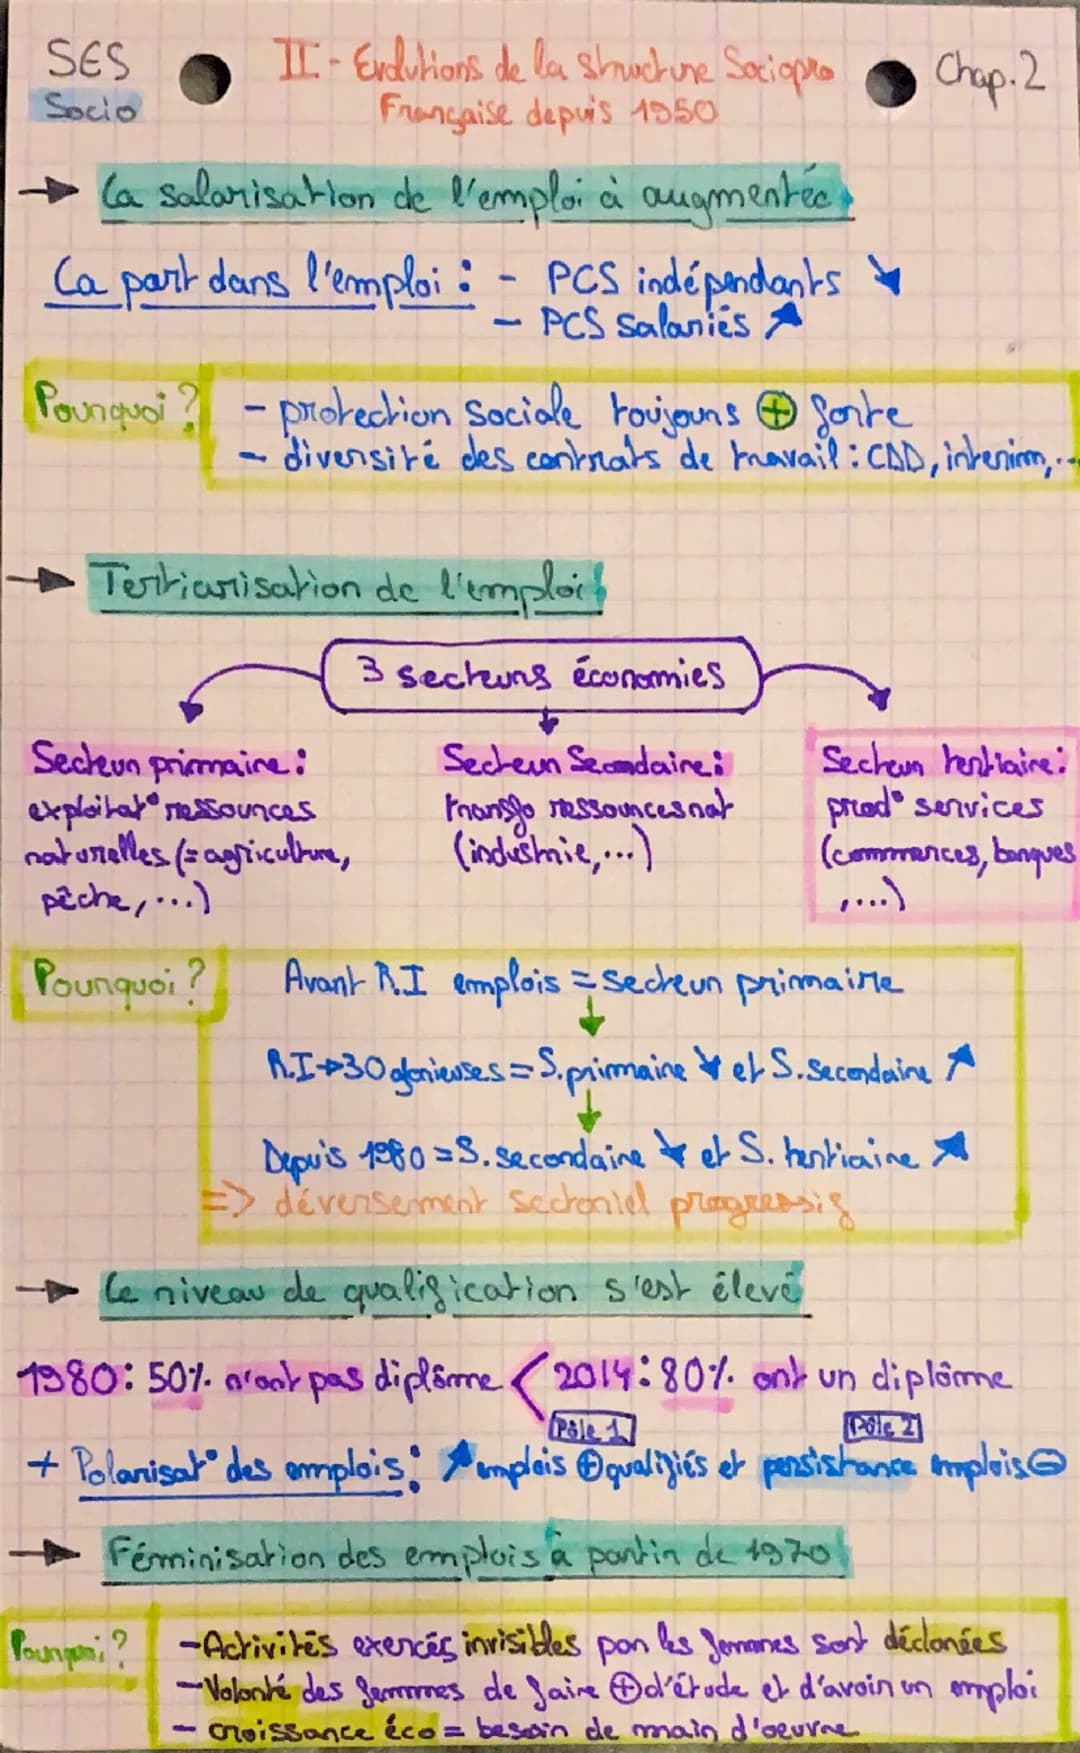 SES
Socio
II - Evolutions de la structure Sociopro
Française depuis 1950
Chap. 2
→ La salarisation de l'emploi à augmentée
La part dans l'emploi : - PCS indépendants ↘
- PCS salariés ↗
Pourquoi ?
- protection sociale toujours ⊕ forte
- diversité des contrats de travail : CDD, interim, ...
→ Tertiarisation de l'emploi
3 secteurs économies
Secteur primaire :
exploitat° ressources
naturelles (= agriculture,
pêche, ...)
Secteur Secondaire :
transfo ressources nat
(industrie, ...)
Secteur tertiaire :
prod° services
(commerces, banques
, ....)
Pourquoi ?
Avant R.I emplois = secteur primaire
↓
R.I → 30 glorieuses = S. primaire ↘ et S. secondaire ↗
↓
Depuis 1980 = S. secondaire ↘ et S. tertiaire ↗
=> déversement sectoriel progressif
→ Le niveau de qualification s'est élevé
1980 : 50% n'ont pas diplôme < 2014 : 80% ont un diplôme
Pôle 1
Pôle 2
+ Polarisat° des emplois : ↗ emplois ⊕ qualifiés et persistance emplois ⊖
→ Féminisation des emplois à partir de 1970
Pourquoi ?
- Activités exercés invisibles par les femmes sont déclarées
- Volonté des femmes de faire ⊕ d'étude et d'avoir un emploi
- croissance éco = besoin de main d'oeuvre